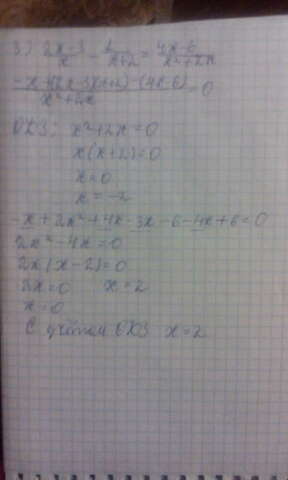 3) (2x-3)/x - 1/(x+2) = (4x-6)/(x²+2x)
(-x+(2x-3)(x+2)-(4x-6))/(x²+2x) = 0
ОДЗ: x²+2x=0
x(x+2)=0
x=0
x=-2
-x+2x²+4x-3x-6-4x+6=0
2x²-4x=0
2x(x-2)=0
2x=0 x=2
x=0
С учётом ОДЗ x=2